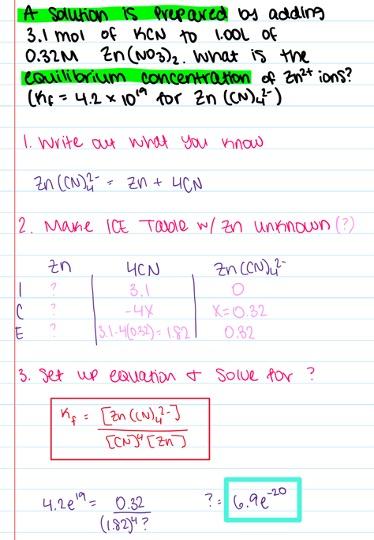 A solution is prepared by adding
3.1 mol of KCN to 1.00L of
0.32M Zn(NO3)2. What is the
equilibrium concentration of Zn2+ ions?
(Kf = 4.2 x 10^19 for Zn(CN)4^2-)
1. Write out what you know
Zn(CN)4^2- = Zn + 4CN
2. Make ICE Table w/ Zn unknown (?)
Zn 4CN Zn(CN)4^2-
I ? 3.1 0
C ? -4x X=0.32
E ? 3.1-4(0.32)=1.82 0.32
3. Set up equation & solve for ?
Kf = [Zn(CN)4^2-]
[CN]^4[Zn]
4.2e^19 = 0.32 ?= 6.9e^-20
(1.82)^4 ?